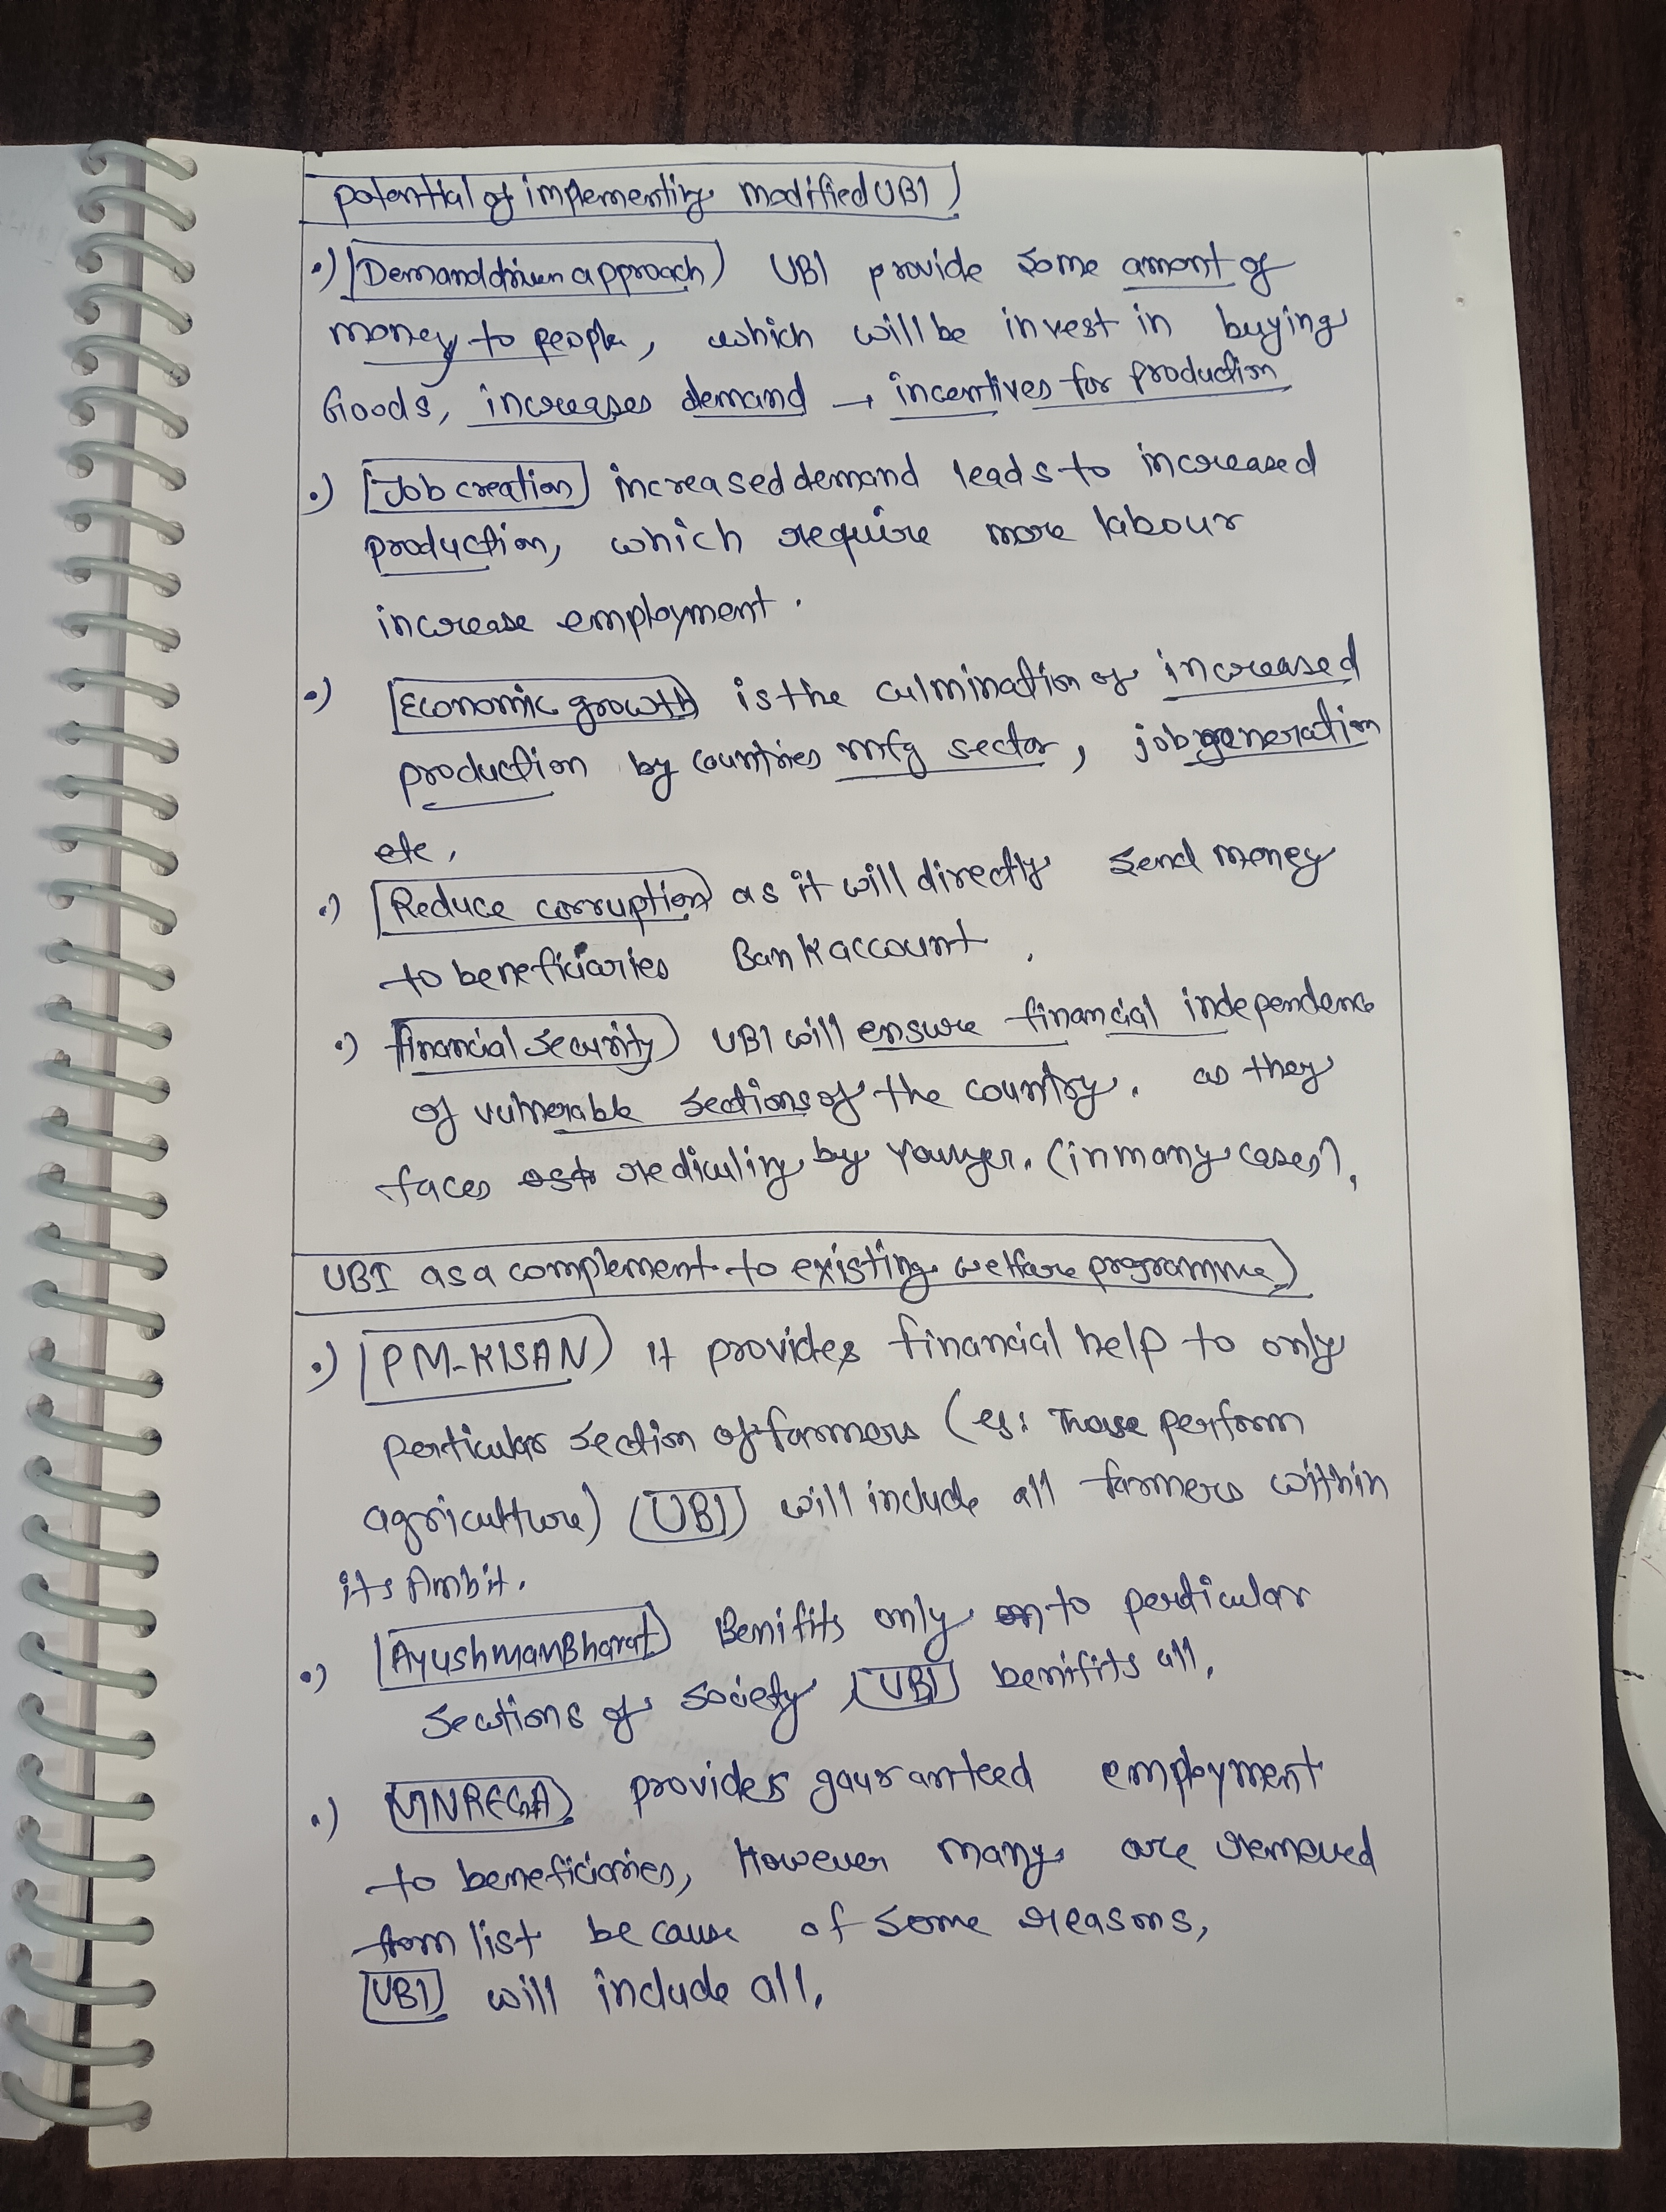 potential of implementing modified UBI
Demand driven approach UBI provide some amont of
money to people, which will be invest in buying
Goods, increases demand → incentives for production
Job creation increased demand leads to increased
production, which require more labour
increase employment.
Economic growth is the culmination of increased
production by countries mfg sector, job generation
etc,
Reduce corruption as it will directly send money
to beneficiaries Bank account,
financial security UBI will ensure financial independence
of vulnerable sections of the country. as they
faces rediculing by younger. (in many cases),
UBI as a complement to existing welfare programme
PM-KISAN it provides financial help to only
perticular section of farmers (eg: Those perform
agriculture) UBI will include all farmers within
its Ambit.
Ayushman Bharat Benifits only to perticular
sections of society, UBI benifits all,
MNREGA provides gauranteed employment
to beneficiaries, However many are removed
from list because of some reasons,
UBI will include all,